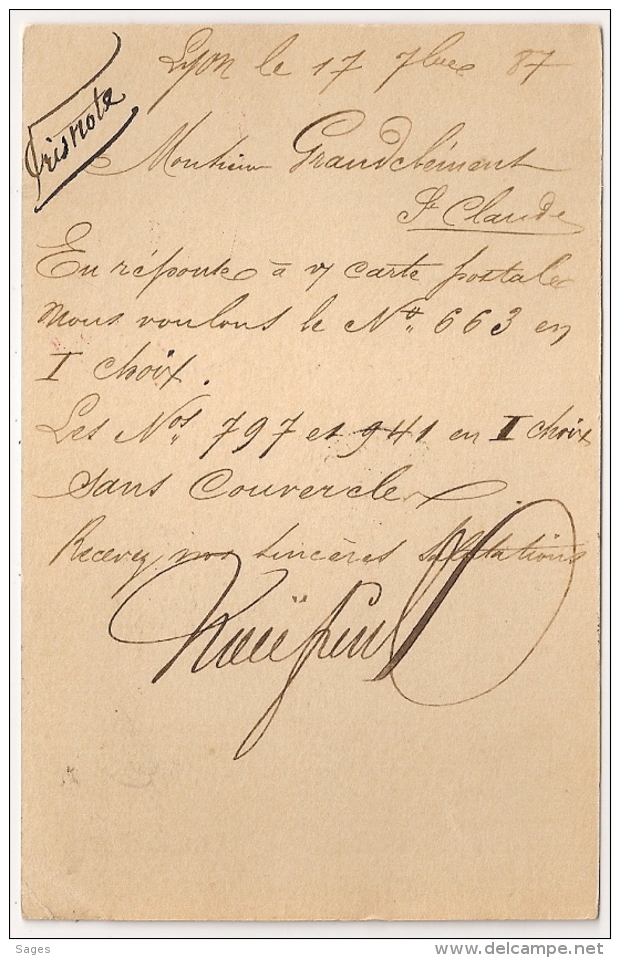 Lyon le 17 7bre 87
Pris note
Monsieur Grandclément
St Claude
En réponse à v/ carte postale
nous voulons le No 663 en
I choix.
Les Nos 797 et 941 en I choix
sans couvercle
Recevez nos sincères salutations
Sages
delcampe.net